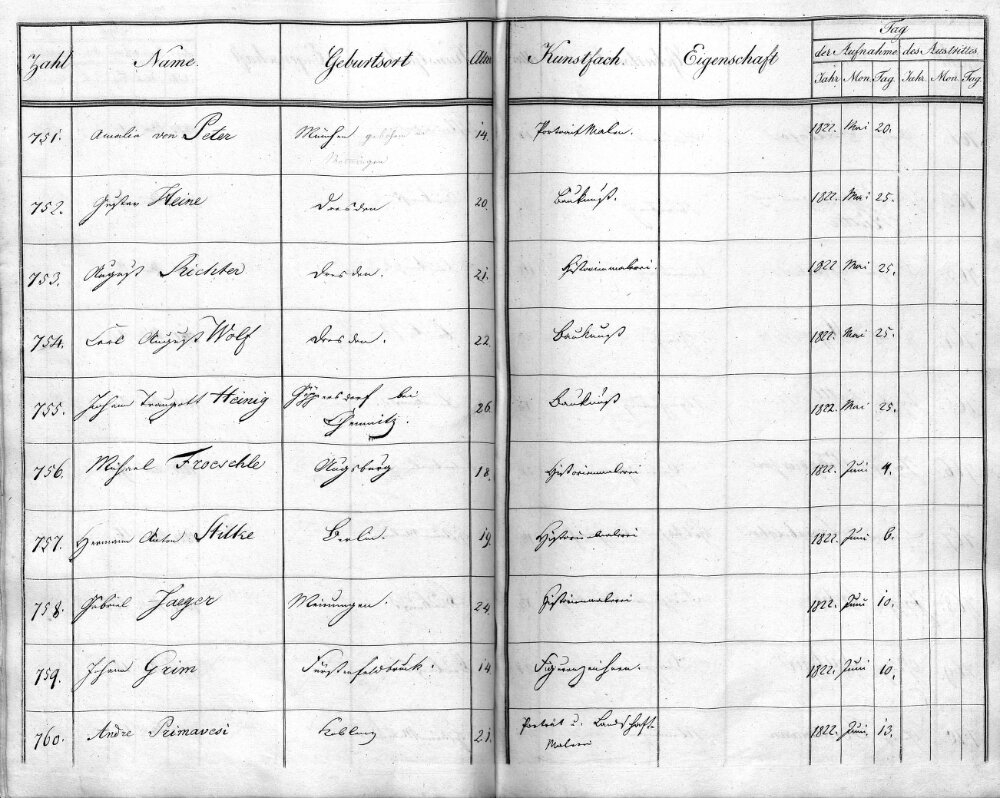 Zahl Name. Geburtsort Alter Kunstfach. Eigenschaft Tag
der Aufnahme des Austrittes
Jahr Mon. Tag. Jahr. Mon. Tag
751. Amalia von Peter München 14. Portrait Malen. 1822. Mai 20.
752. Gustav Heine Dresden 20. Baukunst. 1822. Mai 25.
753. August Richter Dresden. 21. Historienmalerei. 1822 Mai 25.
754. Carl August Wolf Dresden. 22. Baukunst 1822. Mai 25.
755. Johann Traugott Heinig Göppersdorf bei 26. Baukunst 1822. Mai 25.
Chemnitz.
756. Michael Froeschle Augsburg 18. Historienmalerei 1822. Juni 4.
757. Hermann Anton Stilke Berlin. 19. Historienmalerei 1822. Juni 6.
758. Gabriel Jaeger Meinungen. 24. Historienmalerei 1822. Juni 10.
759. Johann Grim Fürstenfeldbruck. 14. Figurenzeichnen. 1822. Juni 10.
760. Andre Primavesi 21. Porträt u. Landschaft 1822. Juni 13.
Malerei